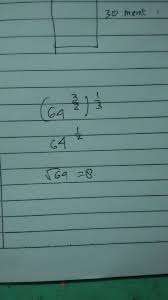 30 menit
(64^(3/2))^(1/3)
64^(1/2)
√64 = 8